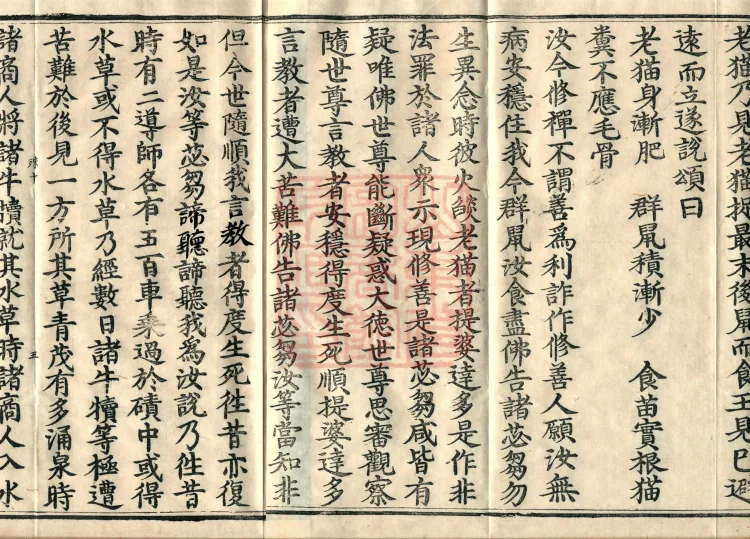 老猫乃則老猫最末後鼠而食王見已避
遠而立遂說頌曰
老猫身漸肥 群鼠積漸少 食苗實根猫
糞不應毛骨
汝今修禪不謂善爲利詐作修善人願汝無
病安穩住我今群鼠汝食盡佛告諸苾芻勿
生異念時彼火燄老猫者提婆達多是作非
法罪於諸人衆示現修善是諸苾芻咸皆有
疑唯佛世尊能斷疑惑大德世尊思審觀察
隨世尊言教者安穩得度生死順提婆達多
言教者遭大苦難佛告諸苾芻汝等當知非
但今世隨順我言教者得度生死徃昔亦復
如是汝等苾芻諦聽諦聽我爲汝說乃徃昔
時有二導師各有五百車乘過於磧中或得
水草或不得水草乃經數日諸牛犢等極遭
苦難於後見一方所其草青茂有多涌泉時
五
諸商人將諸牛犢就其水草時諸商人入水